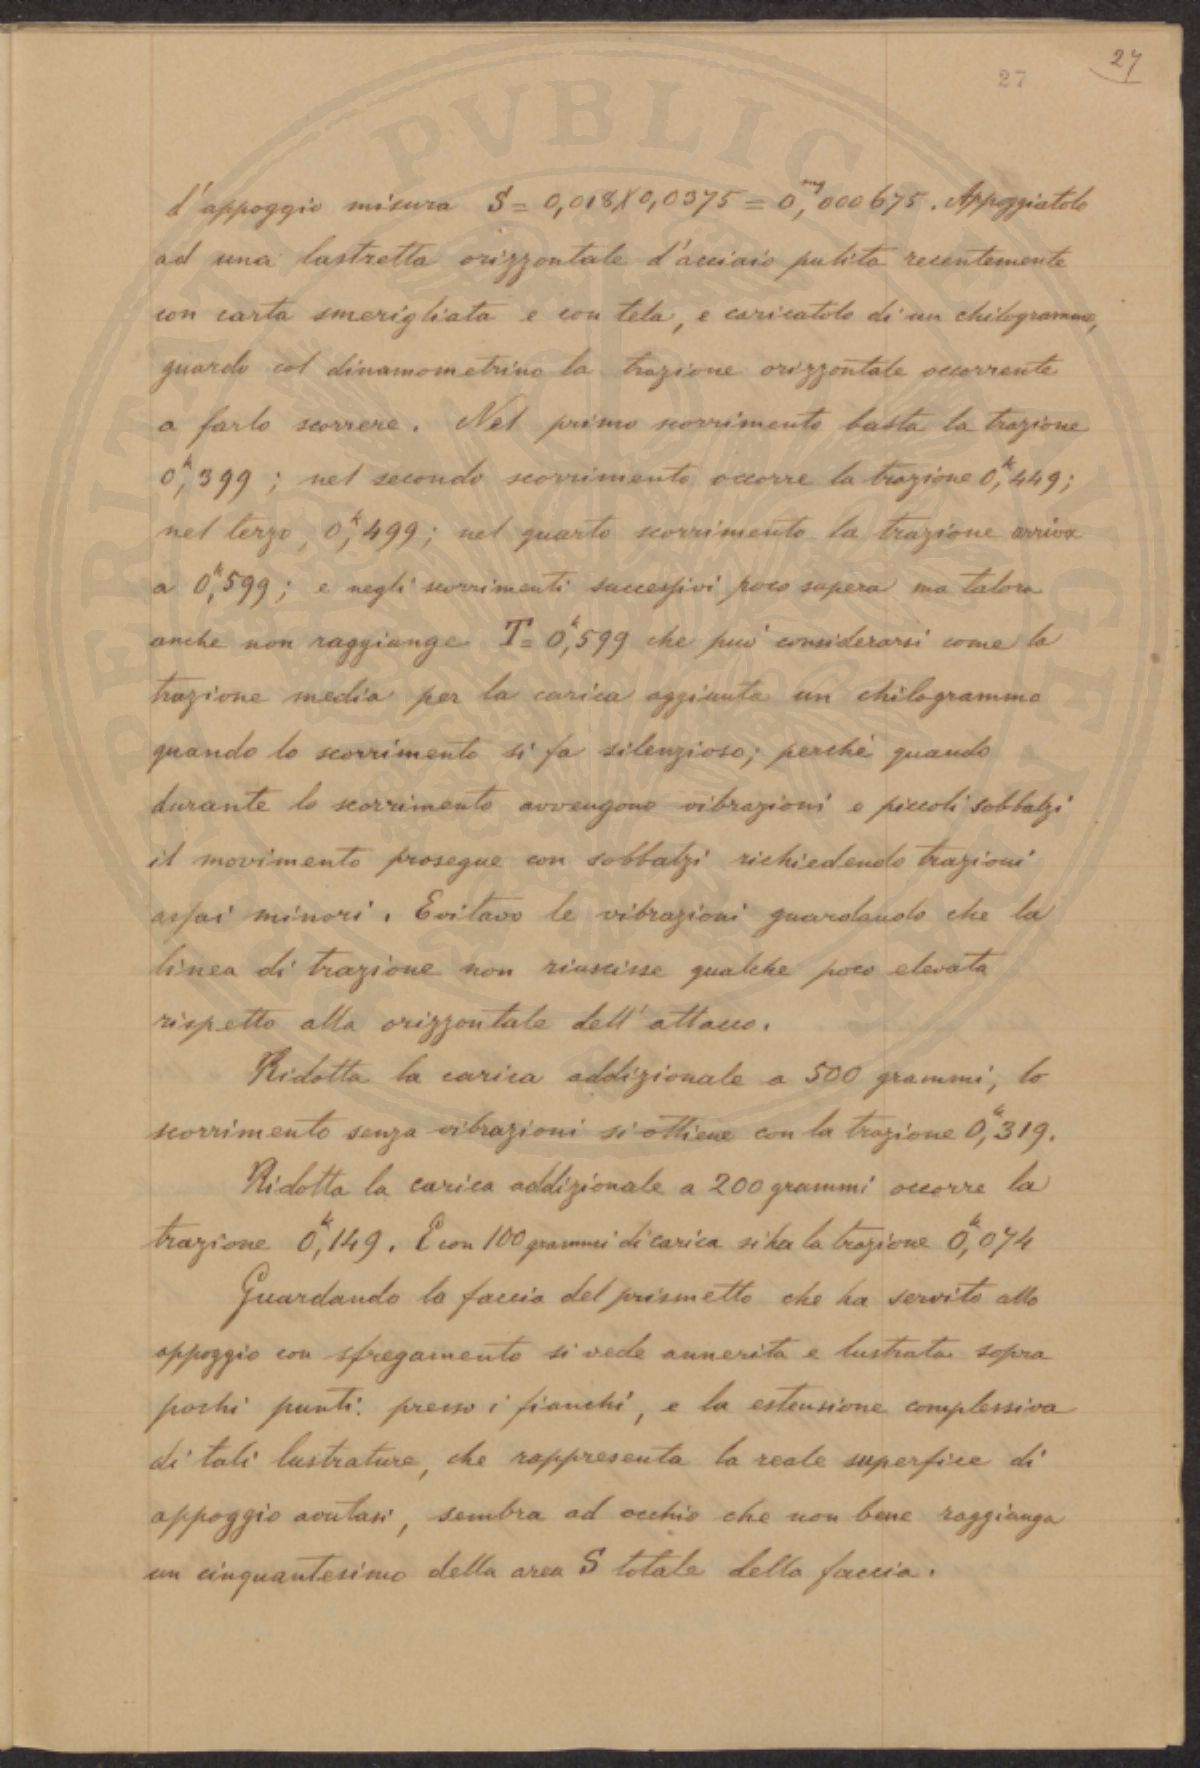 27
27
d'appoggio misura S = 0,018 X 0,0375 = 0,mq000675. Appoggiatolo
ad una lastretta orizzontale d'acciaio pulita recentemente
con carta smerigliata e con tela, e caricatolo di un chilogrammo,
guardo col dinamometrino la trazione orizzontale occorrente
a farlo scorrere. Nel primo scorrimento basta la trazione
0,k399; nel secondo scorrimento occorre la trazione 0,k449;
nel terzo, 0,k499; nel quarto scorrimento la trazione arriva
a 0,k599; e negli scorrimenti successivi poco supera ma talora
anche non raggiunge T = 0,k599 che può considerarsi come la
trazione media per la carica aggiunta un chilogrammo
quando lo scorrimento si fa silenzioso; perchè quando
durante lo scorrimento avvengono vibrazioni e piccoli sobbalzi
il movimento prosegue con sobbalzi richiedendo trazioni
assai minori. Evitavo le vibrazioni guardando che la
linea di trazione non riuscisse qualche poco elevata
rispetto alla orizzontale dell'attacco.
Ridotta la carica addizionale a 500 grammi, lo
scorrimento senza vibrazioni si ottiene con la trazione 0,k319.
Ridotta la carica addizionale a 200 grammi occorre la
trazione 0,k149. E con 100 grammi di carica si ha la trazione 0,k074
Guardando la faccia del prismetto che ha servito allo
appoggio con sfregamento si vede annerita e lustrata sopra
pochi punti presso i fianchi, e la estensione complessiva
di tali lustrature, che rappresenta la reale superfice di
appoggio avutasi, sembra ad occhio che non bene raggiunga
un cinquantesimo della area S totale della faccia.